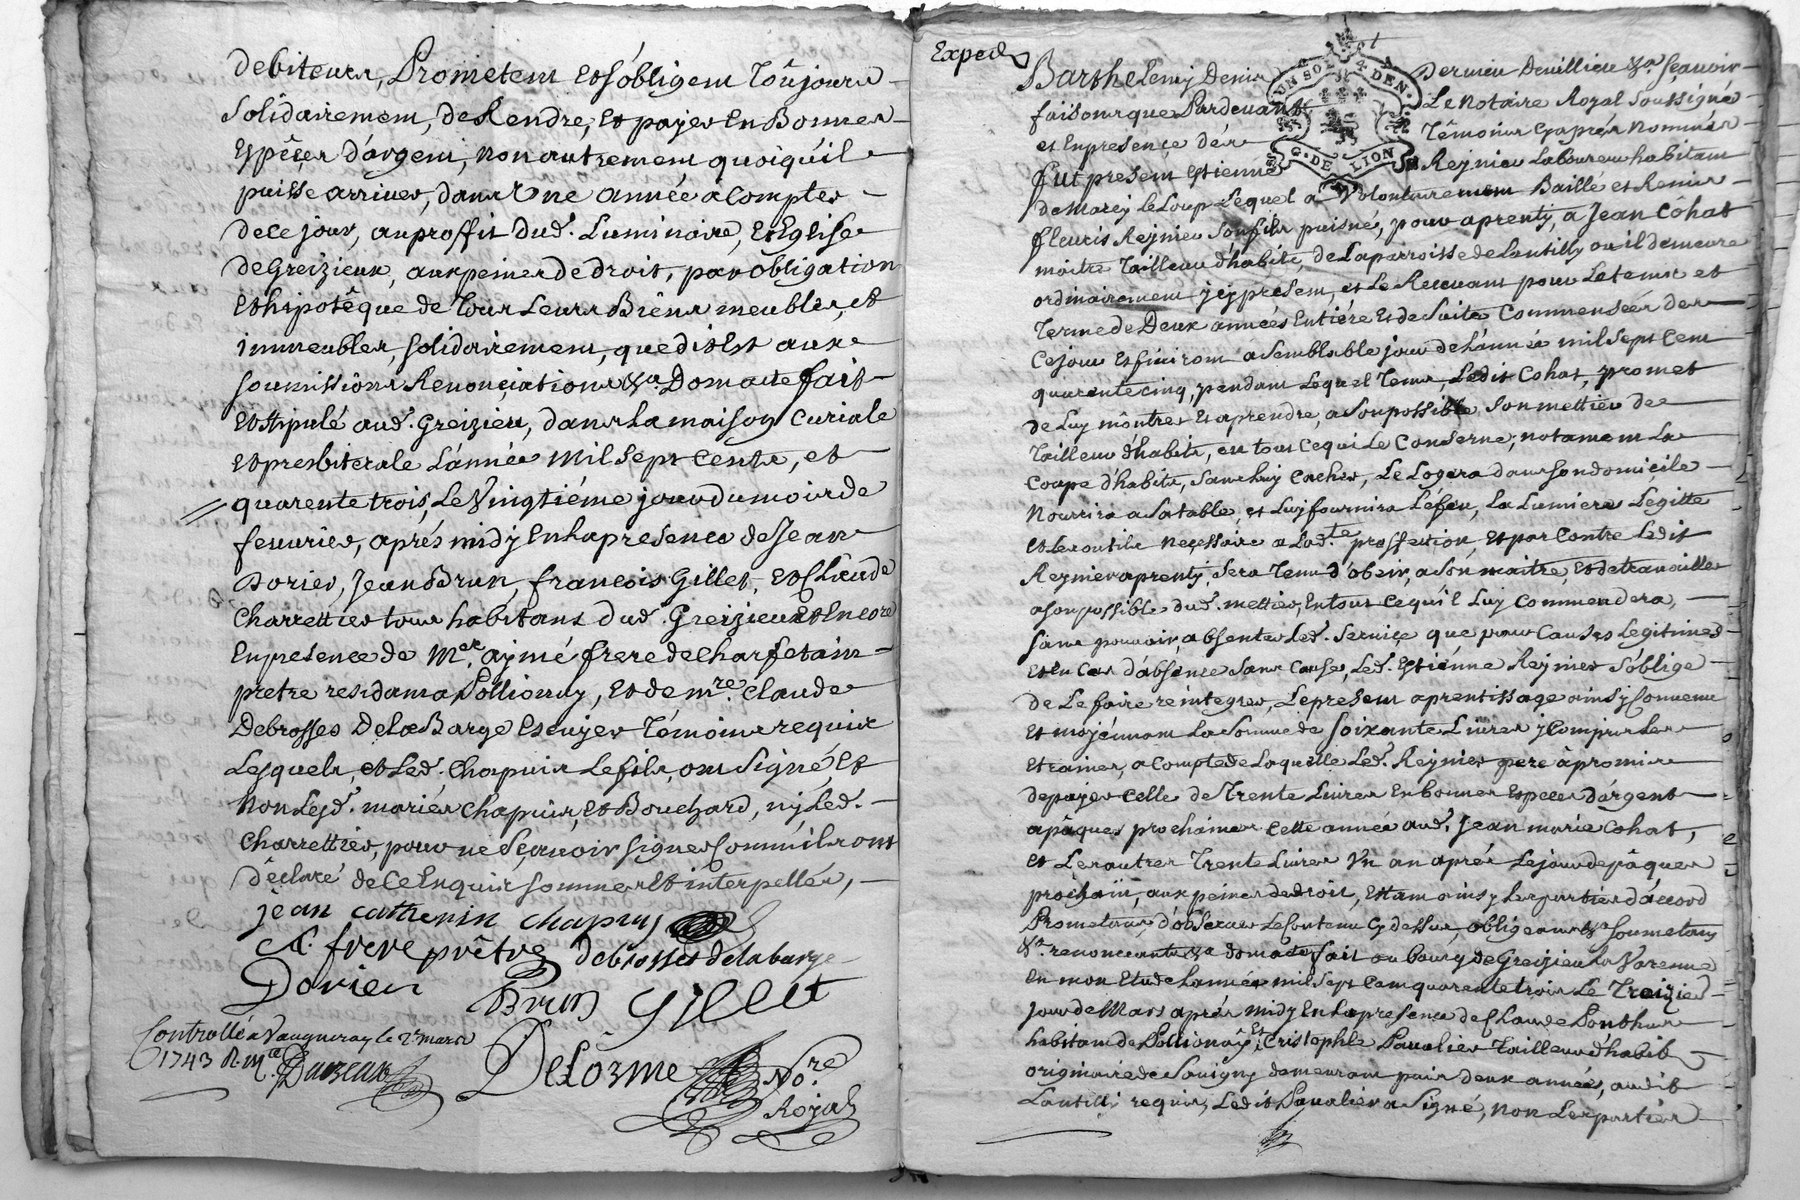 debiteurs, Prometent et s'obligent Toûjours
Solidairement, de Rendre, et payer en Bonnes
Espêces d'argent, non autrement quoiqu'il
puisse arriver, dans Une année à Compter
de ce jour, au proffit dud. Luminaire, et Eglise
de Greizieux, aux peines de droit, par obligation
et hipotêque de Tous Leurs Biens meubles, et
immeubles, solidairement, que dit est aux
soumissions Renonciations &a Dont acte fait
et stipulé aud. Greizieu, dans La maison Curiale
et presbiterale L'année Mil Sept Cents, et
quarente trois, Le Vingtiéme jour du mois de
fevurier, aprés midy En la presence de Jean
Dorier, Jean Brun, françois Gillet, et Claude
Charrettier tous habitans dud. Greizieux et Encore
En presence de Mre. aymé frere de Charfetain
pretre residant a Pollionay, et de mre Claude
Debrosses De La Barge Escuyer Témoins requis
Lesquels, et Led. Chapuis Le fils, ont Signé, et
Non Lesd. mariés Chapuis, et Bouchard, ny Led.
Charrettier, pour ne Sçavoir signer Comm'ils ont
déclaré de ce Enquis sommés et interpellés,
jean catherin chapuy
A. frere prêtre debrosses delabarge
Dorier Brun Gillet
Controllé a Vaugneray le 2e mars
1743 R. Delorme Nore.
Royal
Exped
Barthelemy Denis Dernieu Devillieu &a. Sçavoir
faisons que Pardevant Le Notaire Royal Soussigné
et En presence des Têmoins Cy aprés Nommés
fut present Estienne Reynieu Laboureur habitant
de Marcy le Loup Lequel a Volontairement Baillé et Remis
fleuris Reynieu Son fils puisné, pour aprenty, a Jean Côhat
maitre Tailleur d'habits, de La parroisse de Lentilly ou il demeure
ordinairement jcy present, et Le Recevant pour Le tems et
Terme de Deux années Entiére et de Suite Commensées des
Ce jour et finiront a Semblable jour de L'année mil Sept Cent
quarente Cinq, pendant Lequel Tems Ledit Cohat, promet
de Luy môntrer et aprendre, a Son possible Son mettier de
Tailleur d'habits, en tout Ce qui Le Conserne, notament La
Coupe d'habits, Sans luy Cacher, Le Logera dans Son domicile
Nourrira a Sa table, et Luy fournira Le feu, La Lumiere Le gitte
et Les outils necessaire a Lad.te proffession, et par Contre Ledit
Reynier aprenty, Sera Tenu d'obeir, a Son maitre, et de travailler
a Son possible dud. mettier, En tout Ce qu'il Luy Commendera,
Sans pouvoir absenter Led. Service que pour Causes Legitimes
et En Cas d'absence Sans Cause, Led. Estiénne Reynier S'oblige
de Le faire reintegrer, Le present aprentissage ainsy Convenu
et moyénnant La Somme de Soixante Livres y Compris Les
etraines, a Compte de Laquelle Led. Reynier pere à promis
de payer Celle de Trente Livres En bonnes Especes d'argent
a pâques prochaines Cette année aud. Jean marie Cohat,
et Les autres Trente Livres Un an aprés Le jour de pâques
prochain, aux peines de droit, Etant ainsy Les parties d'accord
Prometans, d'observer Le Contenu Cy dessus, obligeans &a Soumetans
&a. renonceants &a dont acte fait au bourg de Greizieu La Varenne
En mon Etude L'année mil Sept Cent quarente trois Le Treizieme
Jour de Mars aprés midy En La presence de Claude Ponthus
habitant de Pollionay, Et Cristophle Pavalier Tailleur d'habits
originaire de Savigny demeurant puis deux année, audit
Lantilli requis, Ledit Pavalier a Signé, non Les parties
UN SOL 4. DEN.
G. DE LION